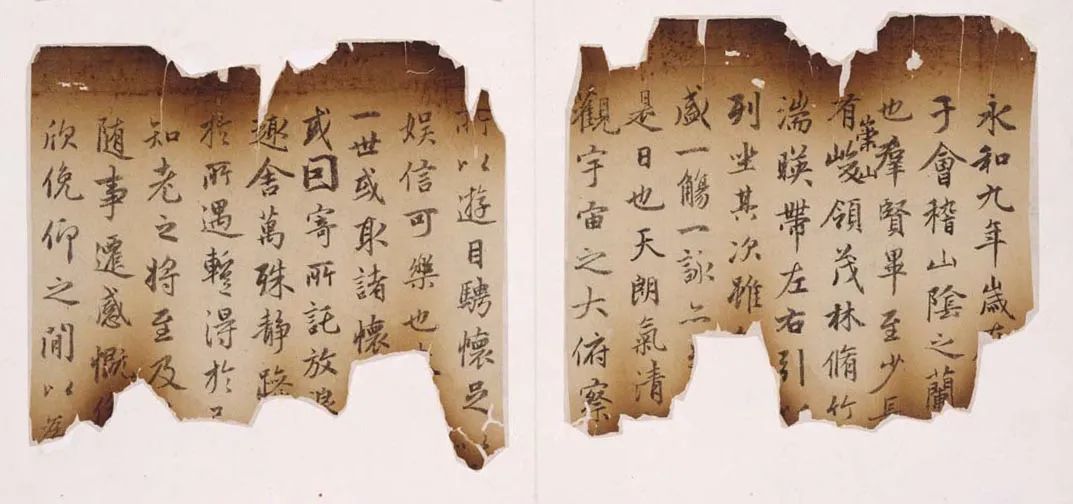 永和九年歲
于會稽山陰之蘭
也羣賢畢至少長
有崇山峻領茂林脩竹
湍暎帶左右引以
列坐其次雖
盛一觴一詠亦
是日也天朗氣清
觀宇宙之大俯察
所以遊目騁懷足以
娛信可樂也
一世或取諸懷
或因寄所託放浪
趣舍萬殊靜躁
於所遇蹔得於
知老之將至及
隨事遷感慨係
欣俛仰之閒以為